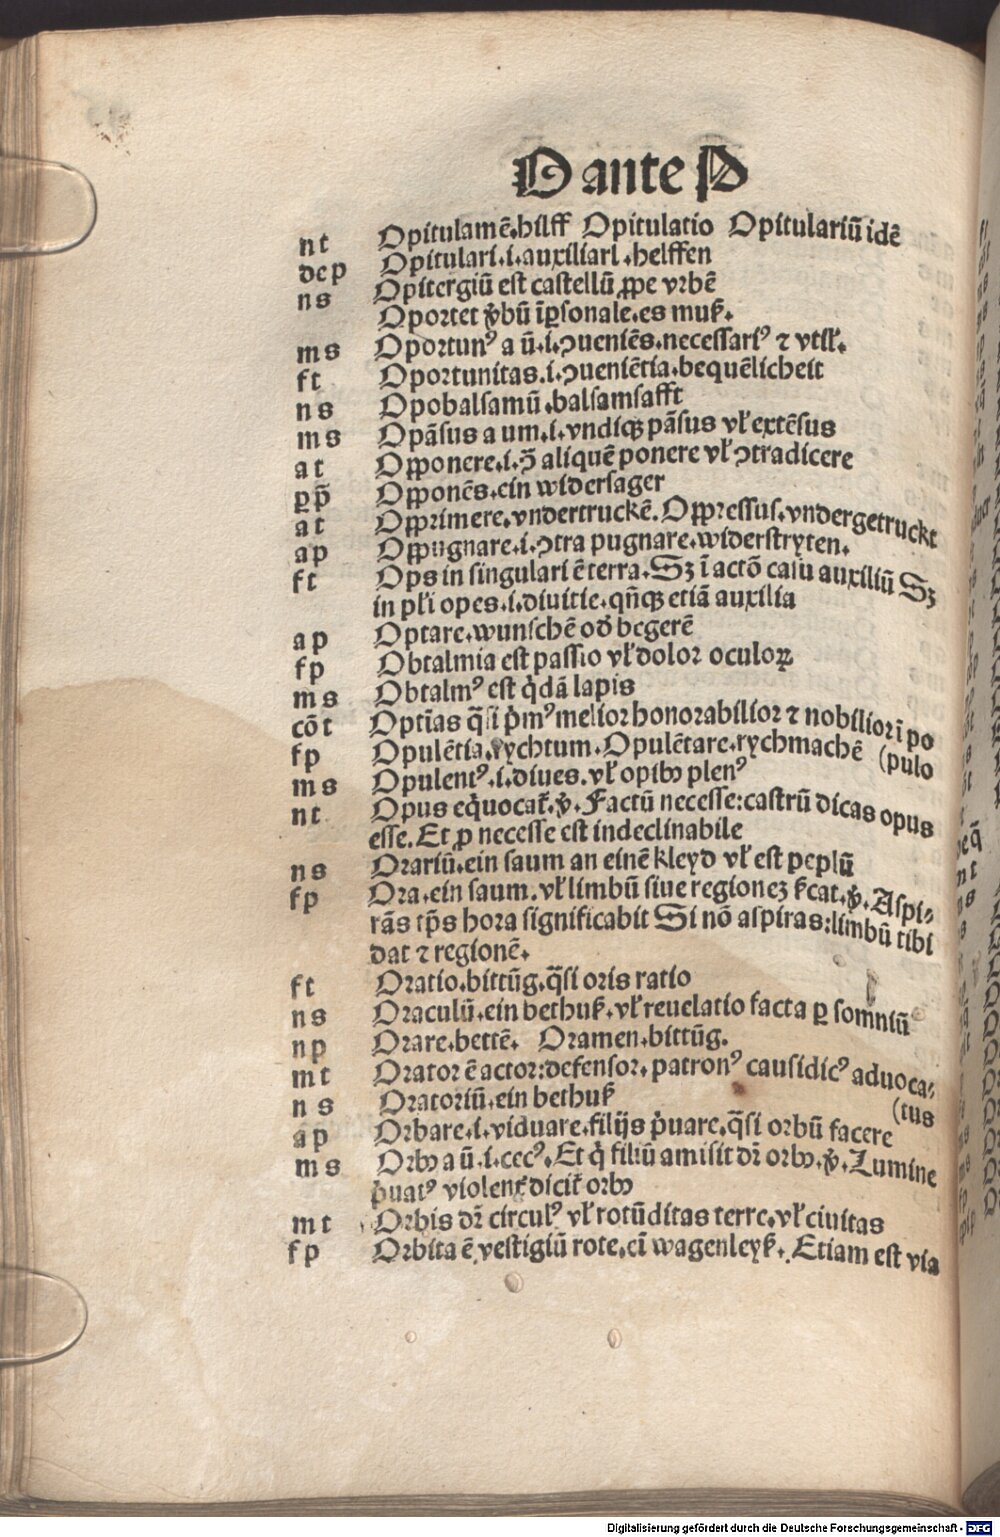 O ante P
nt Opitulamē.hilff Opitulatio Opitulariū idē
dep Opitulari.i.auxiliari.helffen
ns Opitergiū est castellū ꝓpe vrbē
Oportet v̾bū īꝑsonale.es muß.
ms Oportunꝰ a ū.i.ꝯueniēs.necessariꝰ ⁊ vtił.
ft Oportunitas.i.ꝯueniētia.bequēlicheit
ns Opobalsamū.balsamsafft
ms Opāsus a um.i.vndiqꝫ pāsus vł extēsus
at Opponere.i.ꝯ̄ aliquē ponere vł ꝯtradicere
ꝑp̄ Opponēs.ein widersager
at Opprimere.vndertruckē.Oppressus.vndergetruckt
ap Oppugnare.i.ꝯtra pugnare.widerstryten.
ft Ops in singulari ē terra.Sꝫ ī actō casu auxiliū Sꝫ
in płi opes.i.diuitie.qn̄qꝫ etiā auxilia
ap Optare.wunschē od̾ begerē
fp Obtalmia est passio vł dolor oculoꝝ
ms Obtalmꝰ est q̇dā lapis
cōt Optīas q̄si p̓mꝰ melior honorabilior ⁊ nobilior ī po
fp Opulētia.rychtum.Opulētare.rychmachē (pulo
ms Opulentꝰ.i.diues.vł opibꝰ plenꝰ
nt Opus eq̇uocat̾.v̾.Factū necesse:castrū dicas opus
esse.Et ꝓ necesse est indeclinabile
ns Orariū.ein saum an einē kleyd vł est peplū
fp Ora.ein saum.vł limbū siue regionez ẜcat.v̾.Aspi⸗
rās tp̄s hora significabit Si nō aspiras:limbū tibi
dat ⁊ regionē.
ft Oratio.bittūg.q̄si oris ratio
ns Oraculū.ein bethuß.vł reuelatio facta ꝑ somniū
np Orare.bettē. Oramen.bittūg.
mt Orator ē actor:defensor.patronꝰ causidicꝰ aduoca⸗
ns Oratoriū.ein bethuß (tus
ap Orbare.i.viduare.filijs p̓uare.q̄si orbū facere
ms Orbꝰ a ū.i.cecꝰ.Et q̇ filiū amisit dr̄ orbꝰ.v̾.Lumine
p̓uatꝰ violent̾ dicit̾ orbꝰ
mt Orbis dr̄ circulꝰ vł rotūditas terre.vł ciuitas
fp Orbita ē vestigiū rote.eī wagenleyß.Etiam est via
Digitalisierung gefördert durch die Deutsche Forschungsgemeinschaft - DFG